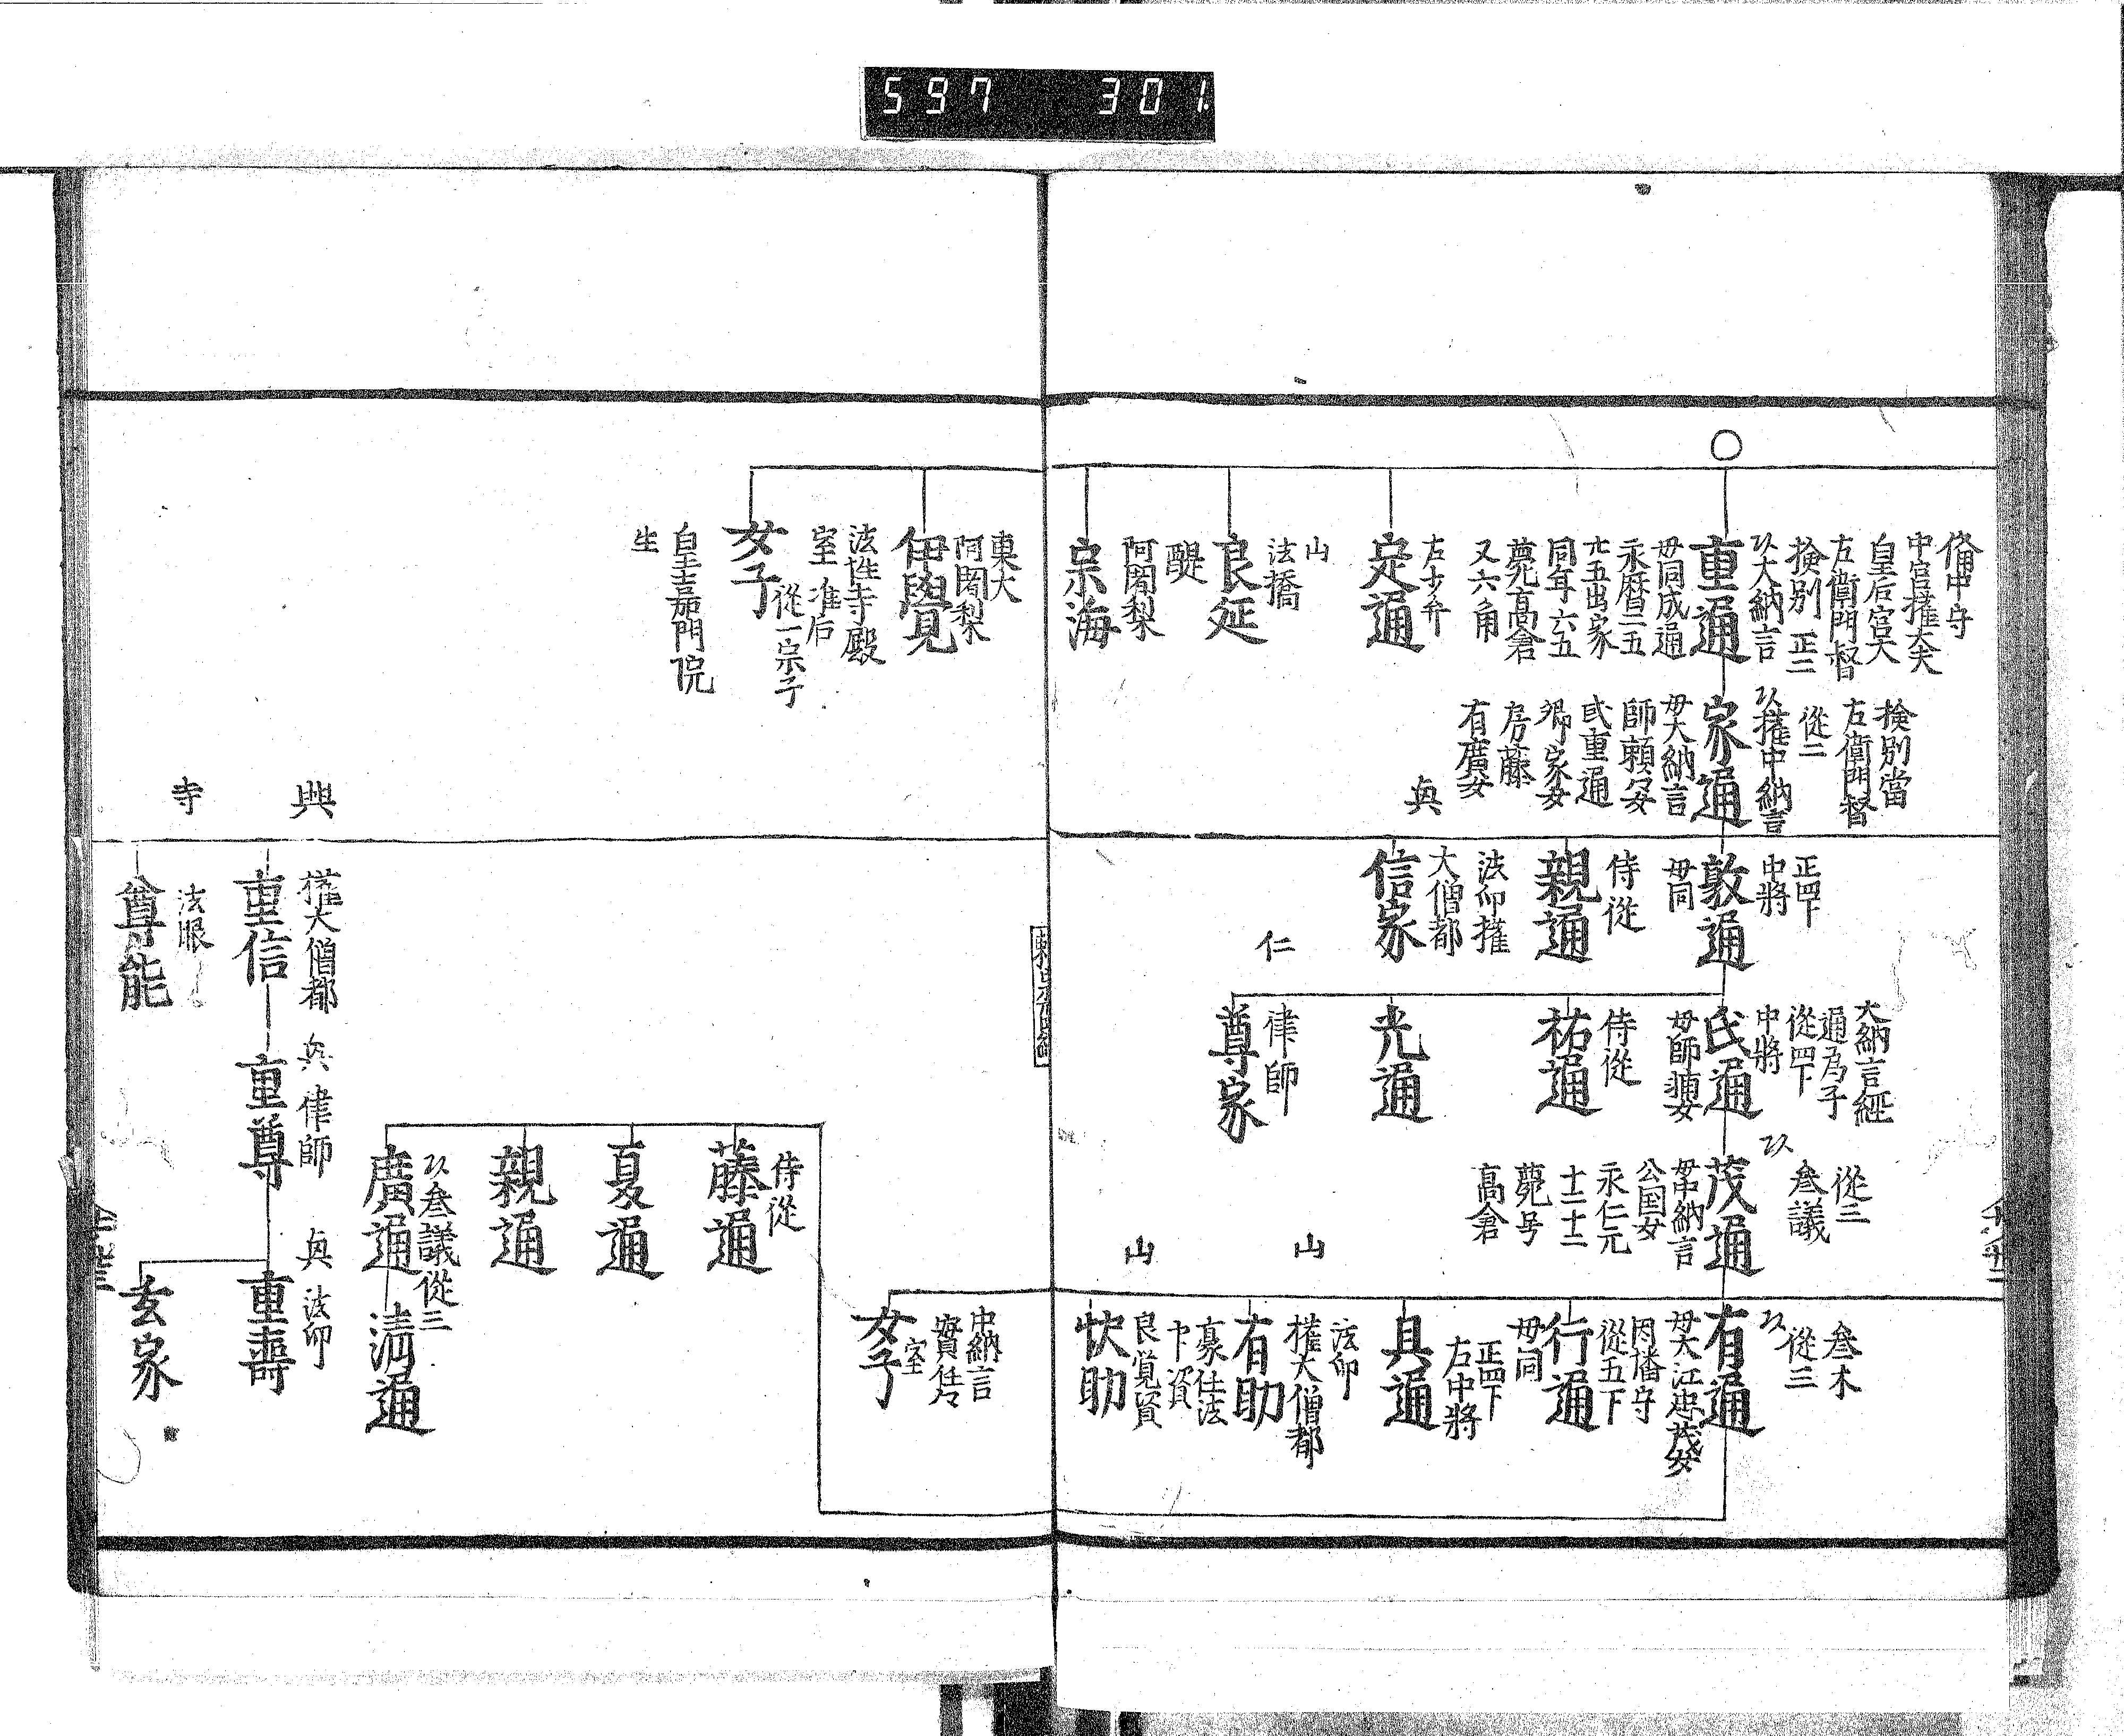 597 301
備中守
中宮權大夫
皇后宮大
左衛門督
撿別 正二
大納言
重通
母同成通
永暦二五
廿五出家
同年六五
薨高倉
又六角
左少弁
定通
山
法橋
良延
醍
阿闍梨
宗海
東大
阿闍梨
伊覺
法性寺殿
室准后
從一宗子
女子
皇嘉門院
生
撿別當
左衛門督
從二
權中納言
家通
母大納言
師頼女
重通
卿家女
房藤
有廣女
正四下
中將
敦通
母同
侍從
親通
法印權
大僧都
信家
興
權大僧都
重信
寺
法眼
尊能
大納言經
通為子
從四下
中將
氏通
母師 女
侍從
祐通
光通
仁
律師
尊家
律師
重尊
從三
叅議
茂通
母中納言
公国女
永仁元
十二十二
薨号
高倉
侍從
藤通
夏通
親通
叅議從三
廣通
清通
叅木
從三
有通
母大江忠茂女
因播守
從五下
行通
母同
正四下
右中將
具通
山
法印
權大僧都
有助
山
良覚資
忺助
中納言
實任
室
女子
法印
重壽
玄家